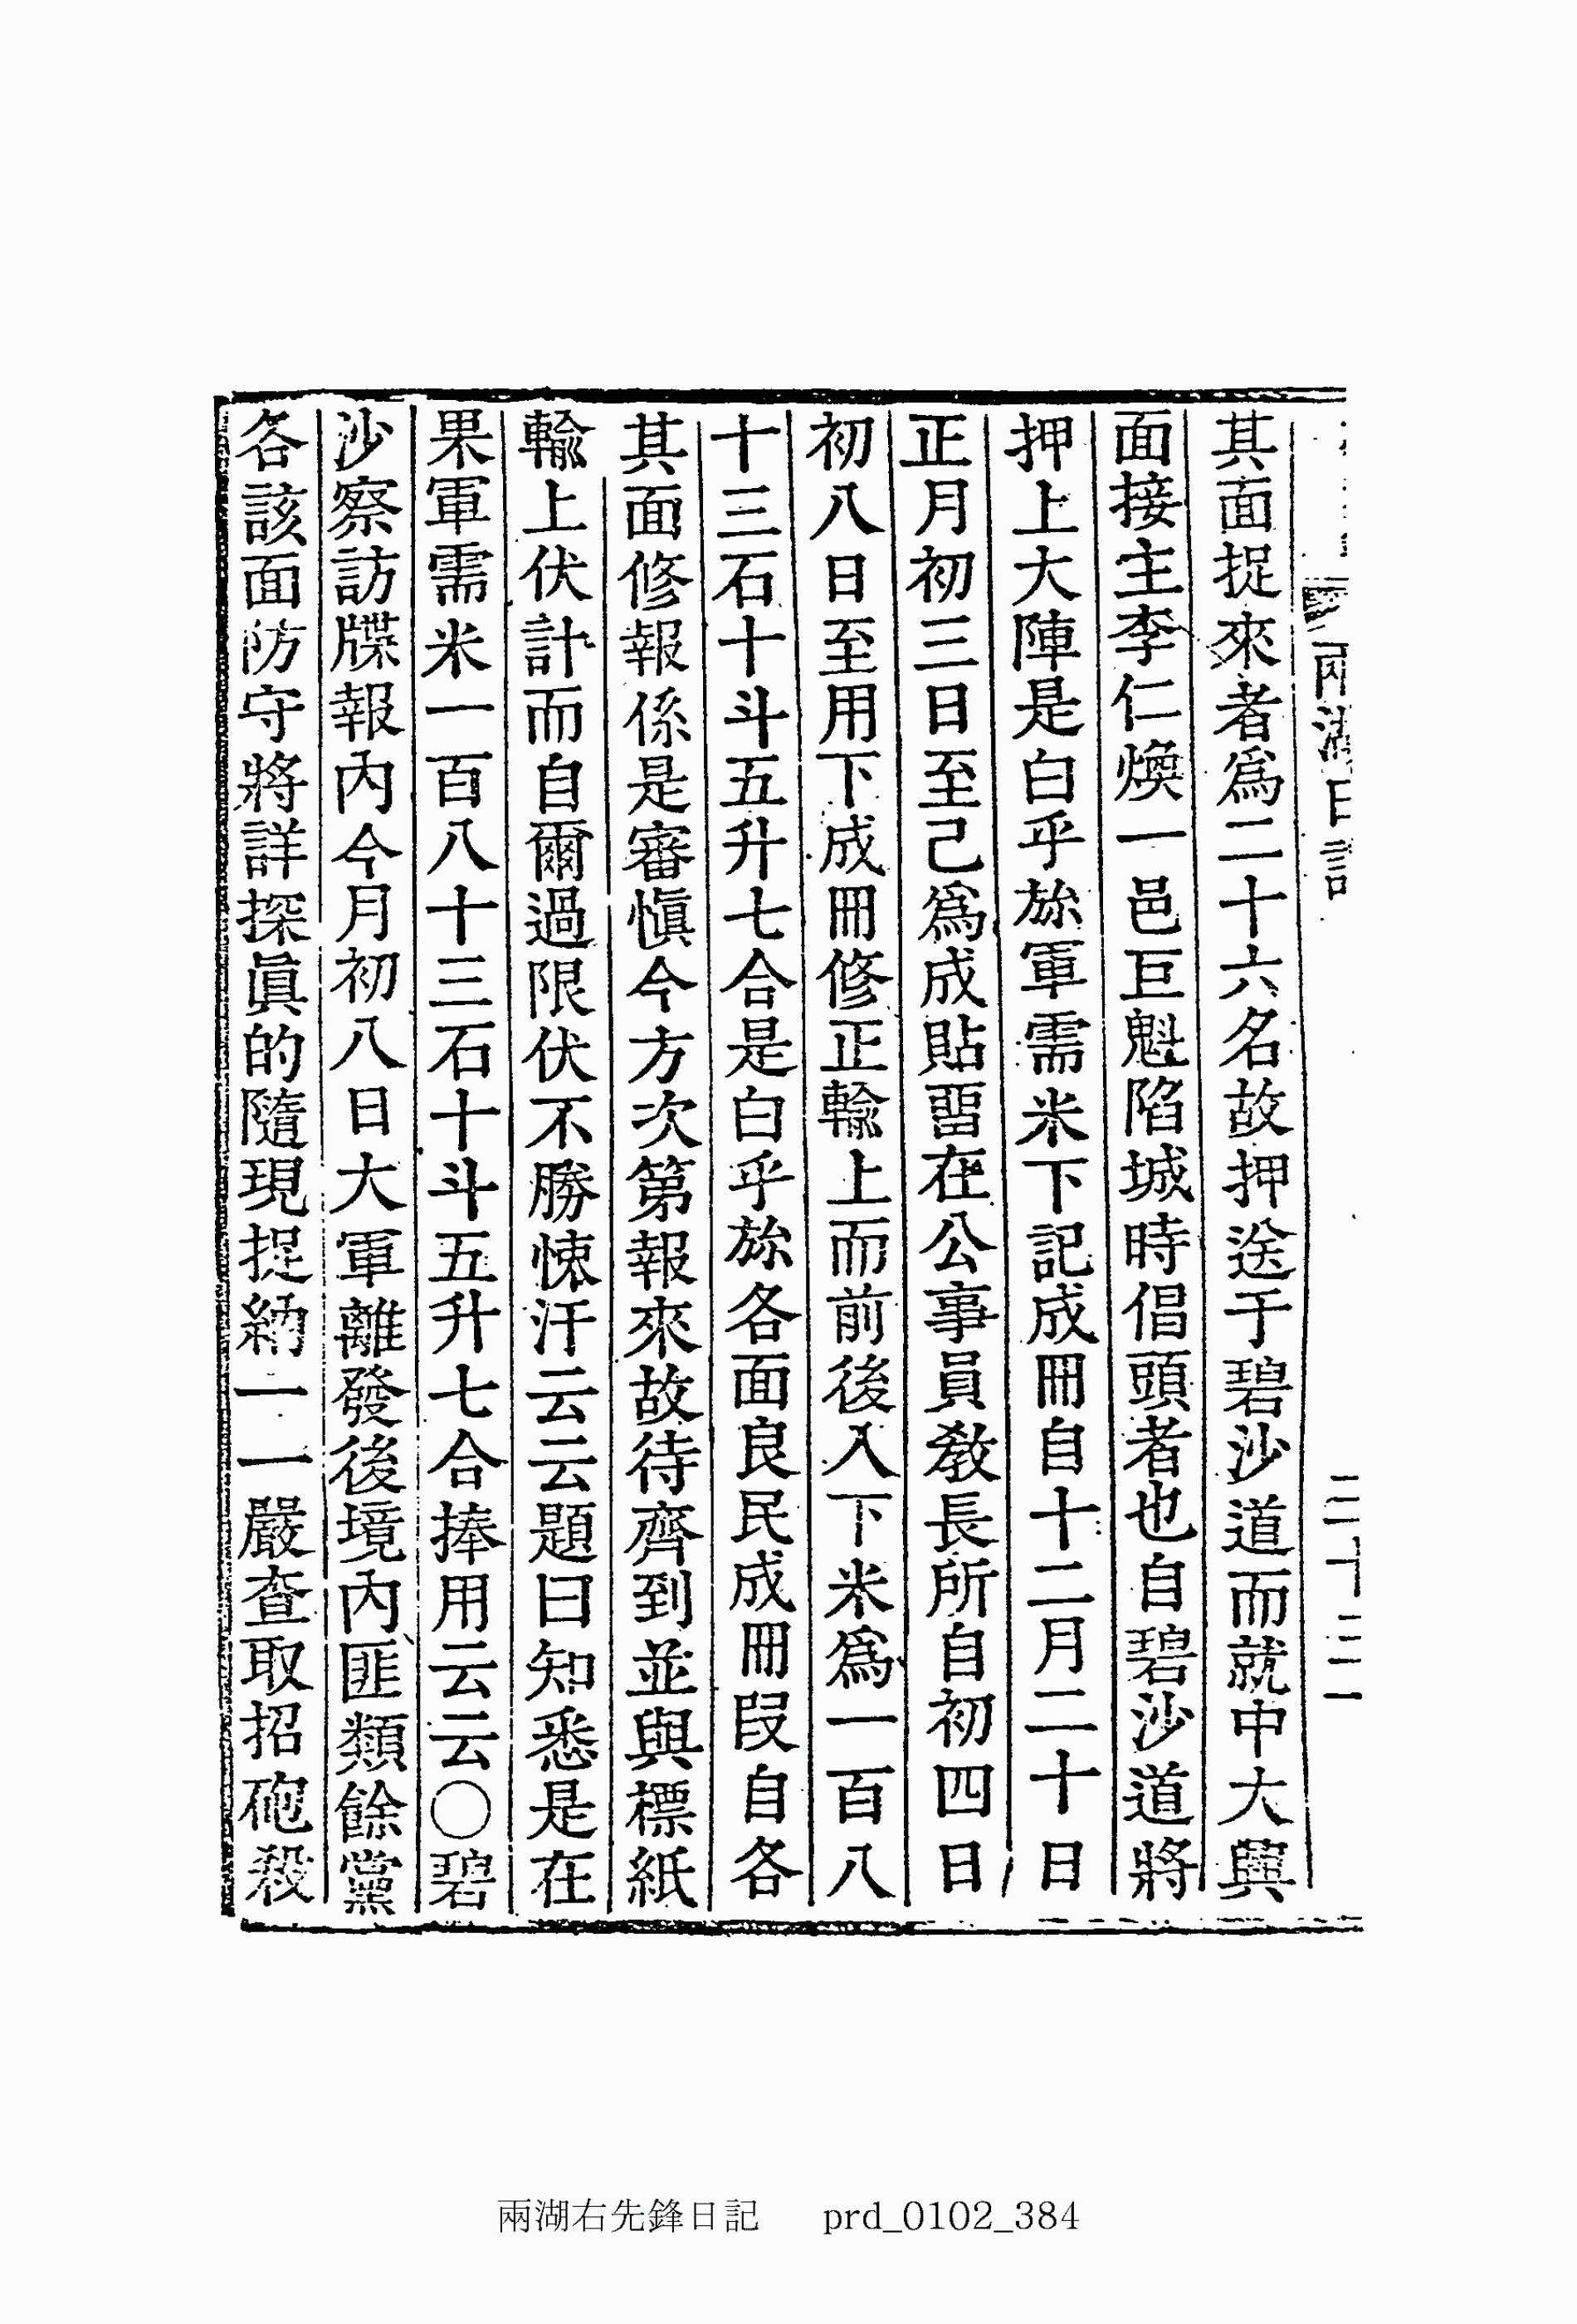 兩湖日記
二十三
其面捉來者爲二十六名故押送于碧沙道而就中大興
面接主李仁煥一邑巨魁陷城時倡頭者也自碧沙道將
押上大陣是白乎旀軍需米下記成冊自十二月二十日
正月初三日至己爲成貼留在公事員敎長所自初四日
初八日至用下成冊修正輸上而前後入下米爲一百八
十三石十斗五升七合是白乎旀各面良民成冊段自各
其面修報係是審愼今方次第報來故待齊到並與標紙
輸上伏計而自爾過限伏不勝悚汗云云題曰知悉是在
果軍需米一百八十三石十斗五升七合捧用云云〇碧
沙察訪牒報內今月初八日大軍離發後境內匪類餘黨
各該面防守將詳探眞的隨現捉納一一嚴查取招砲殺
兩湖右先鋒日記 prd_0102_384